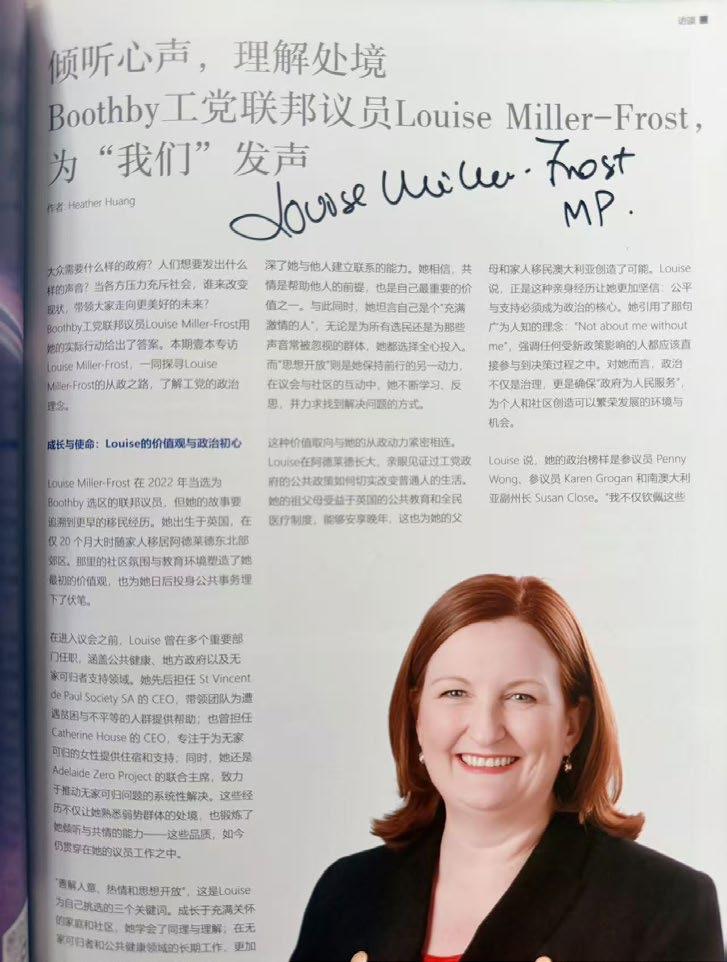 访谈
倾听心声，理解处境
Boothby工党联邦议员Louise Miller-Frost，
为“我们”发声
Louise Miller-Frost
MP.
作者: Heather Huang
大众需要什么样的政府？人们想要发出什么
样的声音？当各方压力充斥社会，谁来改变
现状，带领大家走向更美好的未来？
Boothby工党联邦议员Louise Miller-Frost用
她的实际行动给出了答案。本期壹本专访
Louise Miller-Frost，一同探寻Louise
Miller-Frost的从政之路，了解工党的政治
理念。
成长与使命：Louise的价值观与政治初心
Louise Miller-Frost 在 2022 年当选为
Boothby 选区的联邦议员，但她的故事要
追溯到更早的移民经历。她出生于英国，在
仅 20 个月大时随家人移居阿德莱德东北部
郊区。那里的社区氛围与教育环境塑造了她
最初的价值观，也为她日后投身公共事务埋
下了伏笔。
在进入议会之前，Louise 曾在多个重要部
门任职，涵盖公共健康、地方政府以及无
家可归者支持领域。她先后担任 St Vincent
de Paul Society SA 的 CEO，带领团队为遭
遇贫困与不平等的人群提供帮助；也曾担任
Catherine House 的 CEO，专注于为无家
可归的女性提供住宿和支持；同时，她还是
Adelaide Zero Project 的联合主席，致力
于推动无家可归问题的系统性解决。这些经
历不仅让她熟悉弱势群体的处境，也锻炼了
她倾听与共情的能力——这些品质，如今
仍贯穿在她的议员工作之中。
“善解人意、热情和思想开放”，这是Louise
为自己挑选的三个关键词。成长于充满关怀
的家庭和社区，她学会了同理与理解；在无
家可归者和公共健康领域的长期工作，更加
深了她与他人建立联系的能力。她相信，共
情是帮助他人的前提，也是自己最重要的价
值之一。与此同时，她坦言自己是个“充满
激情的人”，无论是为所有选民还是为那些
声音常被忽视的群体，她都选择全心投入。
而“思想开放”则是她保持前行的另一动力，
在议会与社区的互动中，她不断学习、反
思，并力求找到解决问题的方式。
这种价值取向与她的从政动力紧密相连。
Louise在阿德莱德长大，亲眼见证过工党政
府的公共政策如何切实改变普通人的生活。
她的祖父母受益于英国的公共教育和全民
医疗制度，能够安享晚年，这也为她的父
母和家人移民澳大利亚创造了可能。Louise
说，正是这种亲身经历让她更加坚信：公平
与支持必须成为政治的核心。她引用了那句
广为人知的理念：“Not about me without
me”，强调任何受新政策影响的人都应该直
接参与到决策过程之中。对她而言，政治
不仅是治理，更是确保“政府为人民服务”，
为个人和社区创造可以繁荣发展的环境与
机会。
Louise 说，她的政治榜样是参议员 Penny
Wong、参议员 Karen Grogan 和南澳大利
亚副州长 Susan Close。“我不仅钦佩这些